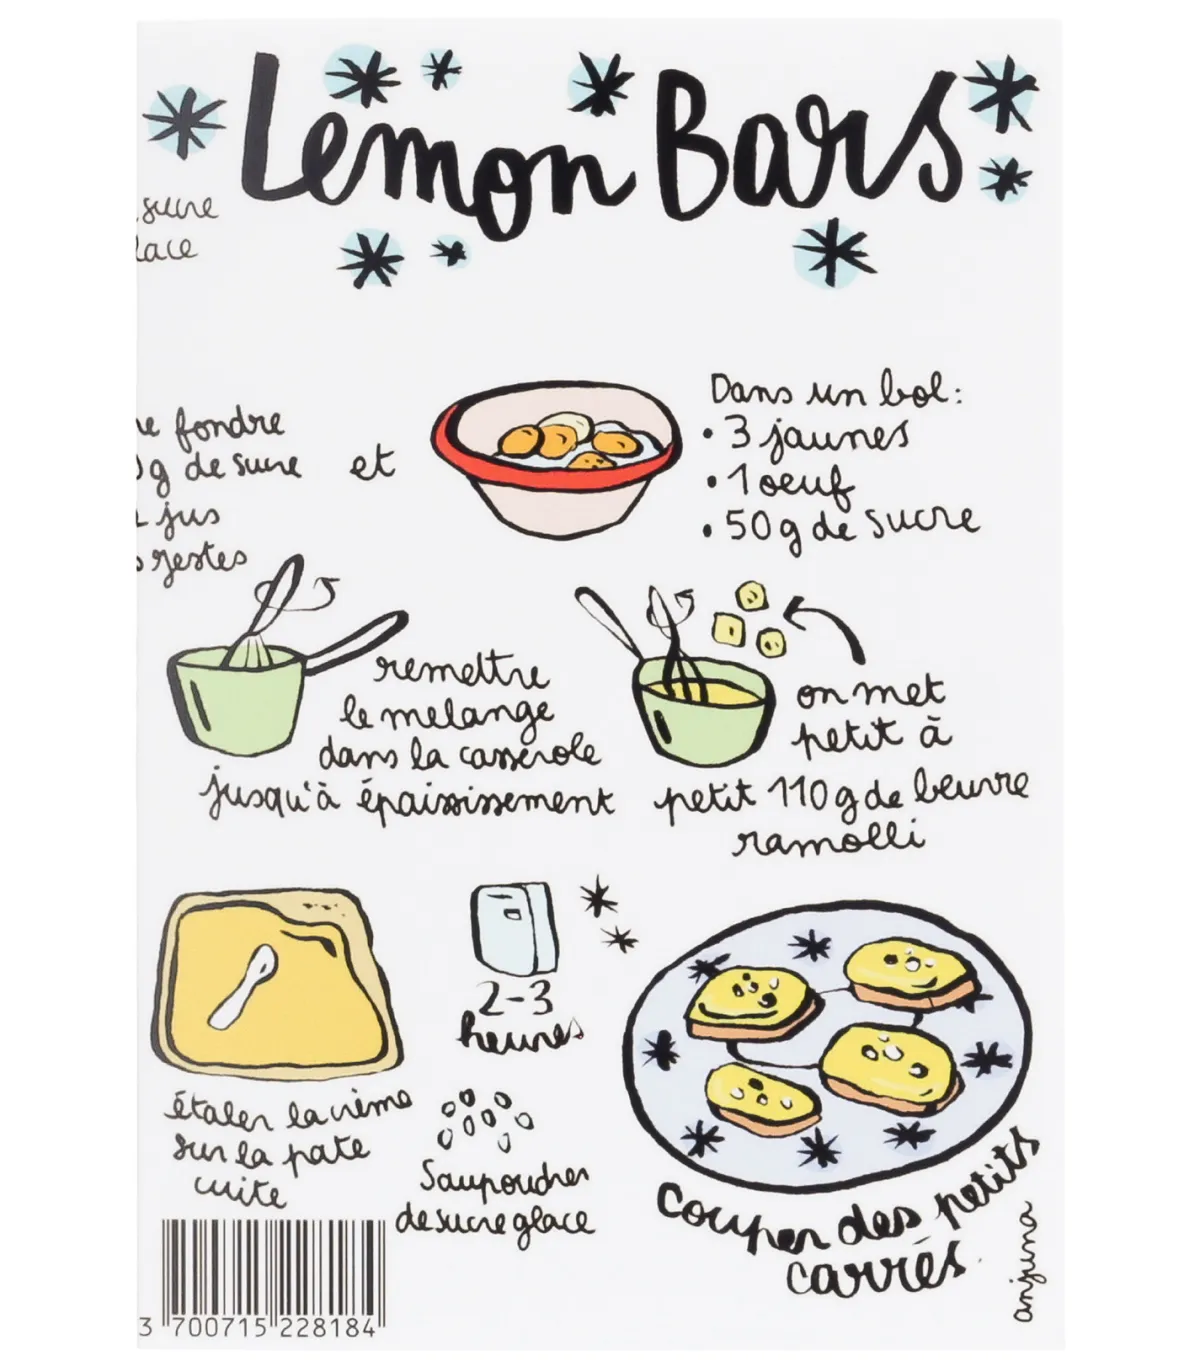 Lemon Bars
sucre
lace
fondre
g de sucre
jus
zestes
et
Dans un bol:
• 3 jaunes
• 1 oeuf
• 50g de sucre
remettre
le melange
dans la casserole
jusqu'à épaississement
on met
petit à
petit 110g de beurre
ramolli
étaler la crème
sur la pate
cuite
2-3
heures
Saupoudrer
de sucre glace
couper des petits
carrés.
anjuna
3 700715 228184